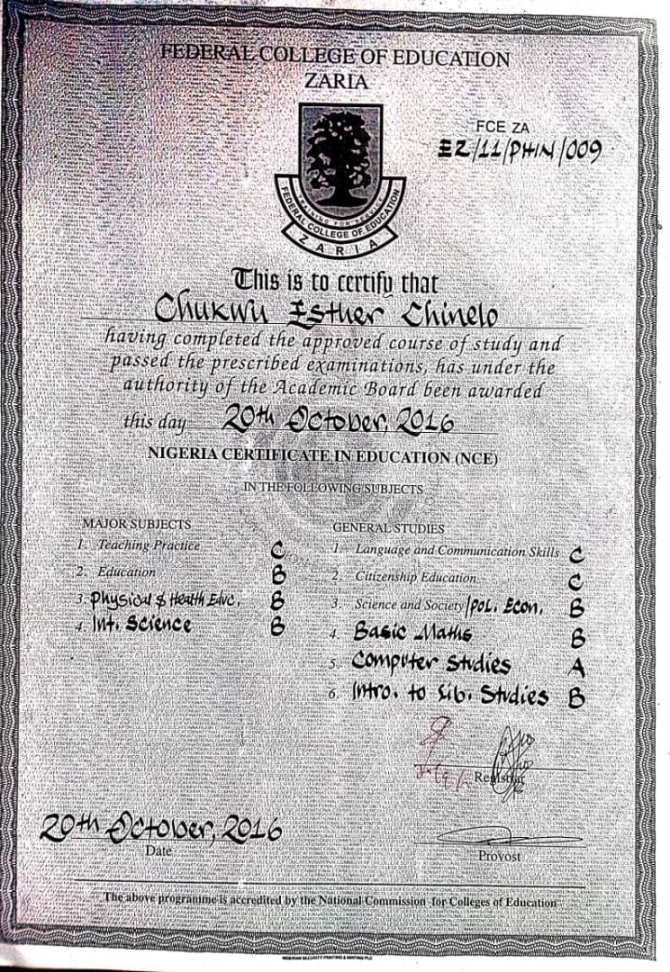 FEDERAL COLLEGE OF EDUCATION
ZARIA
FCE ZA
EZ/11/PHIN/009
FEDERAL COLLEGE OF EDUCATION
ZARIA
This is to certify that
Chukwu Esther Chinelo
having completed the approved course of study and
passed the prescribed examinations, has under the
authority of the Academic Board been awarded
this day 20th October, 2016
NIGERIA CERTIFICATE IN EDUCATION (NCE)
IN THE FOLLOWING SUBJECTS
MAJOR SUBJECTS
1. Teaching Practice C
2. Education B
3. Physical & Health Educ. B
4. Int. Science B
GENERAL STUDIES
1. Language and Communication Skills C
2. Citizenship Education C
3. Science and Society/Pol. Econ. B
4. Basic Maths B
5. Computer Studies A
6. Intro. to Lib. Studies B
Registrar
20th October, 2016
Date
Provost
The above programme is accredited by the National Commission for Colleges of Education